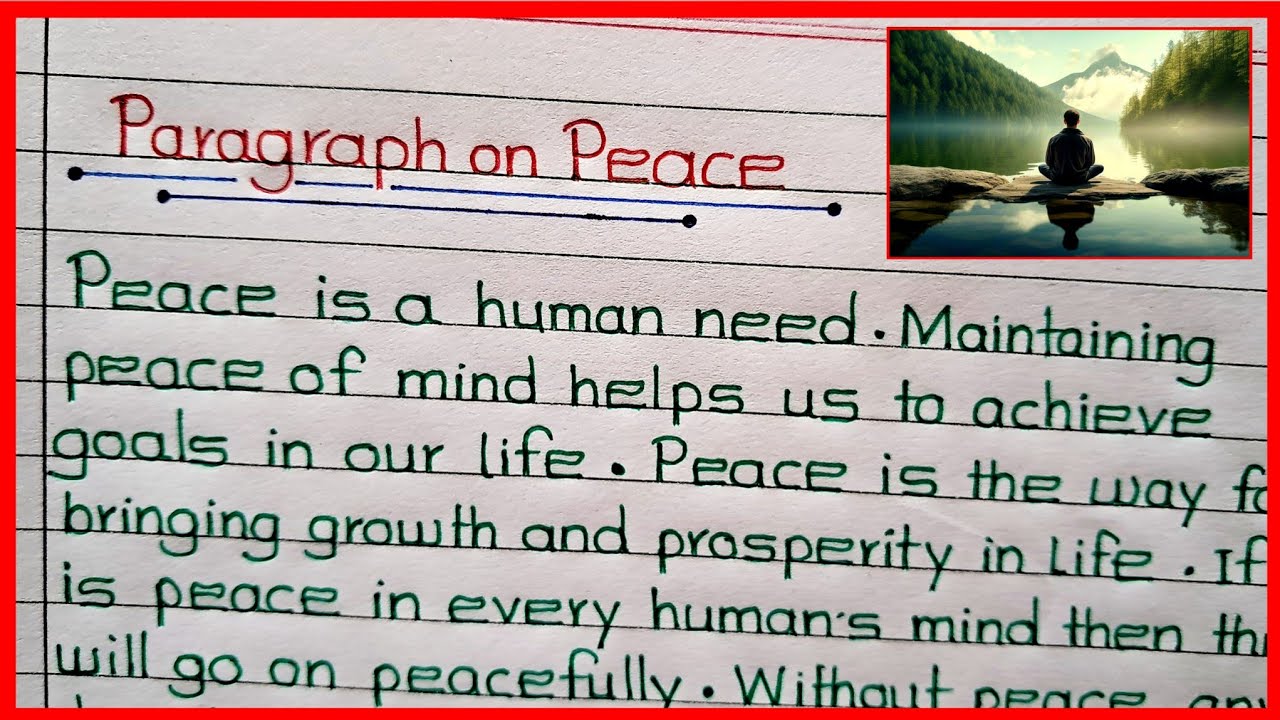 Paragraph on Peace
Peace is a human need. Maintaining
peace of mind helps us to achieve
goals in our life. Peace is the way
bringing growth and prosperity in life. If
is peace in every human's mind then
will go on peacefully. Without peace